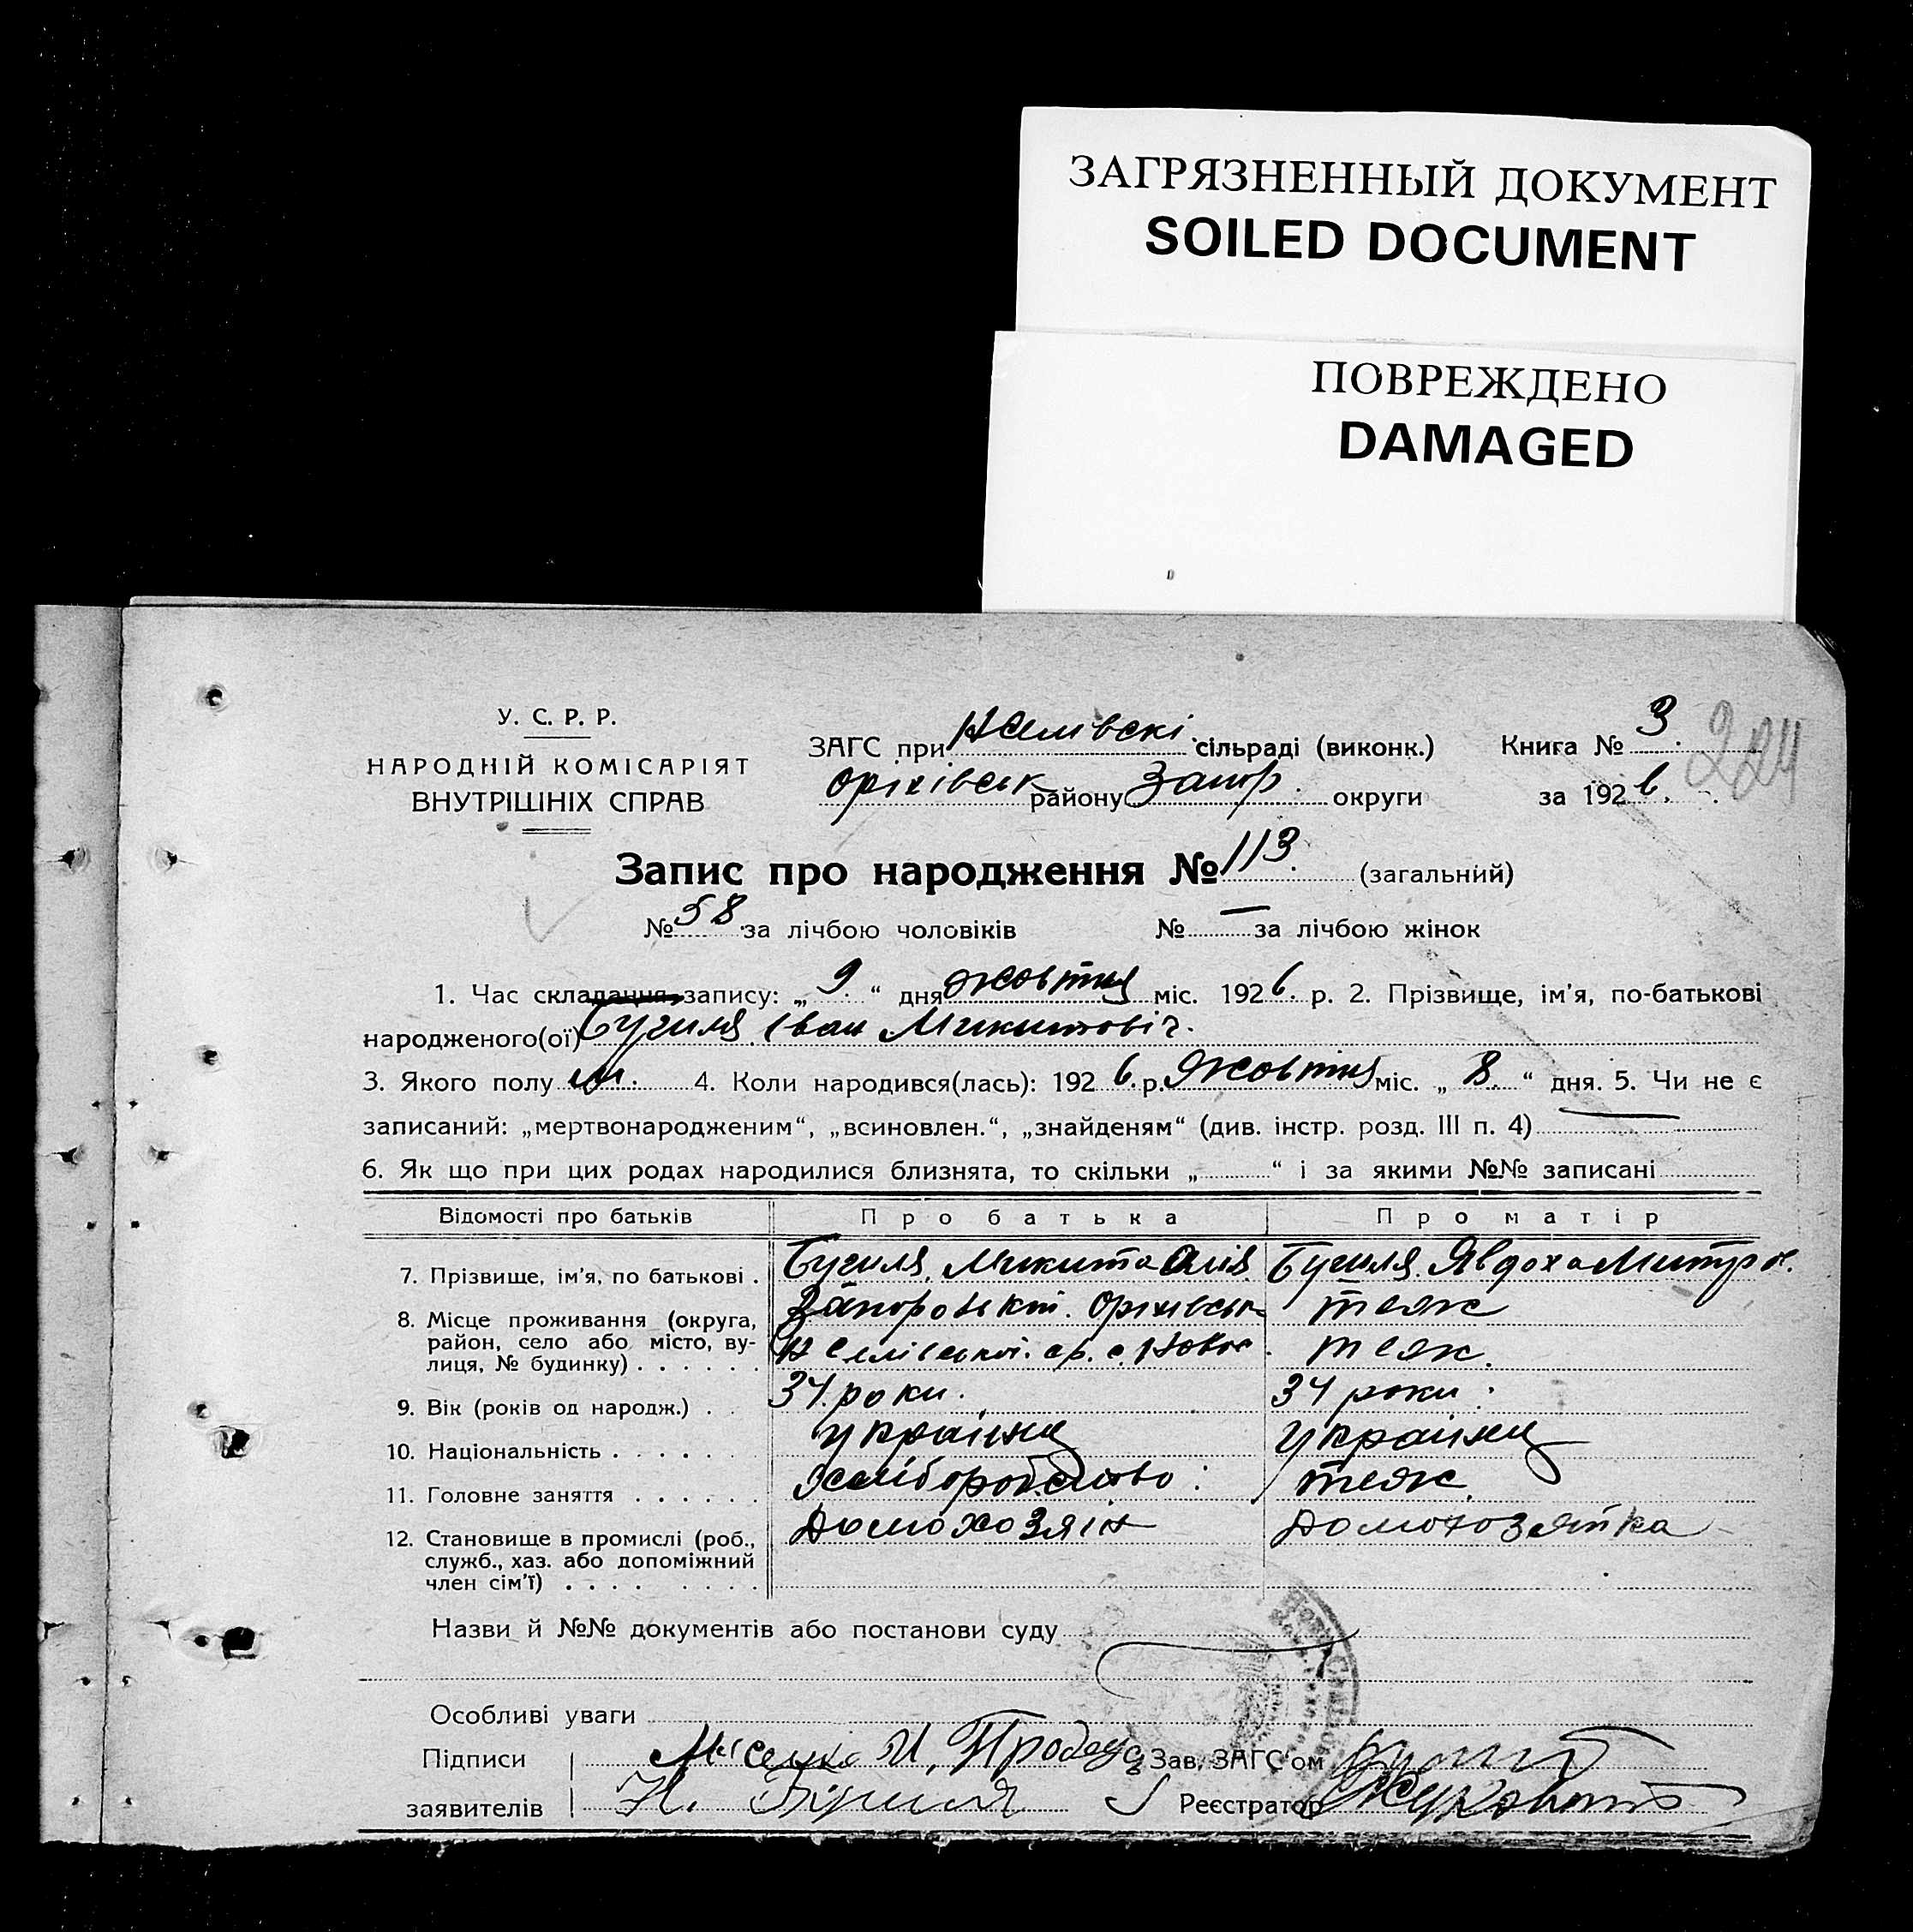 ЗАГРЯЗНЕННЫЙ ДОКУМЕНТ
SOILED DOCUMENT
ПОВРЕЖДЕНО
DAMAGED
У. С. Р. Р.
НАРОДНІЙ КОМІСАРІЯТ
ВНУТРІШНІХ СПРАВ
ЗАГС при сільраді (виконк.) Книга № 3.
Оріхівськ району Запор. округи за 1926.
224
Запис про народження № 113. (загальний)
№ 58 за лічбою чоловіків № — за лічбою жінок
1. Час складання запису: „ 9. “ дня жовтня міс. 1926. р. 2. Прізвище, ім'я, по-батькові
народженого(ої) Іван Микитовіч.
3. Якого полу м. 4. Коли народився(лась): 1926. р. Жовтня міс. „ 8. “ дня. 5. Чи не є
записаний: „мертвонародженим“, „всиновлен.“, „знайденям“ (див. інстр. розд. III п. 4) —
6. Як що при цих родах народилися близнята, то скільки „ “ і за якими №№ записані
Відомості про батьків Про батька Про матір
7. Прізвище, ім'я, по батькові . Микита Явдоха Митров.
8. Місце проживання (округа, Оріхівськ теж
район, село або місто, ву-
лиця, № будинку) . . . . . теж.
9. Вік (років од народж.) . . 34 роки. 34 роки.
10. Національність . . . . . . україна україна
11. Головне заняття . . . . . . теж.
12. Становище в промислі (роб., Домохозяін Домохозяйка
служб., хаз. або допоміжний
член сім'ї) . . . . . . . .
Назви й №№ документів або постанови суду
Особливі уваги
Підписи И. Зав. ЗАГС'ом
заявителів Н. Реєстратор